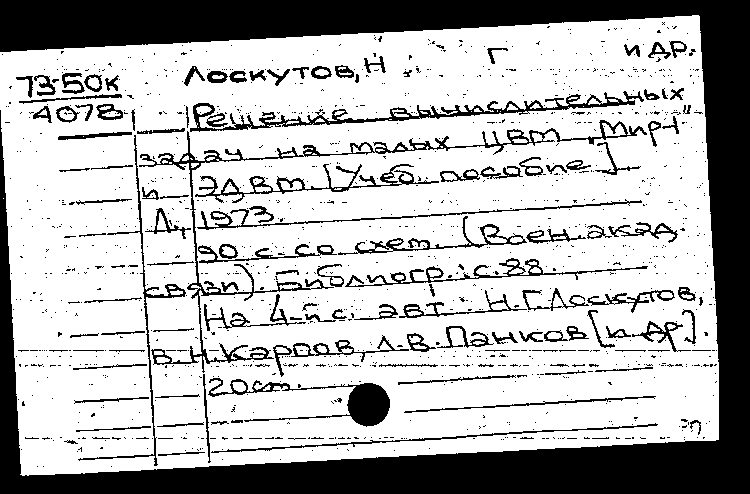 Лоскутов, Н. Г. и др.
73-50к
4078 Решение вычислительных
задач на малых ЦВМ "Мир-1"
и ЭДВМ. [Учеб. пособие]
Л., 1973.
90 с. со схем. (Воен. акад.
связи). Библиогр.: с. 88.
На 4-й с. авт.: Н.Г. Лоскутов,
В.Н. Карпов, Л.В. Панков [и др].
20 см.